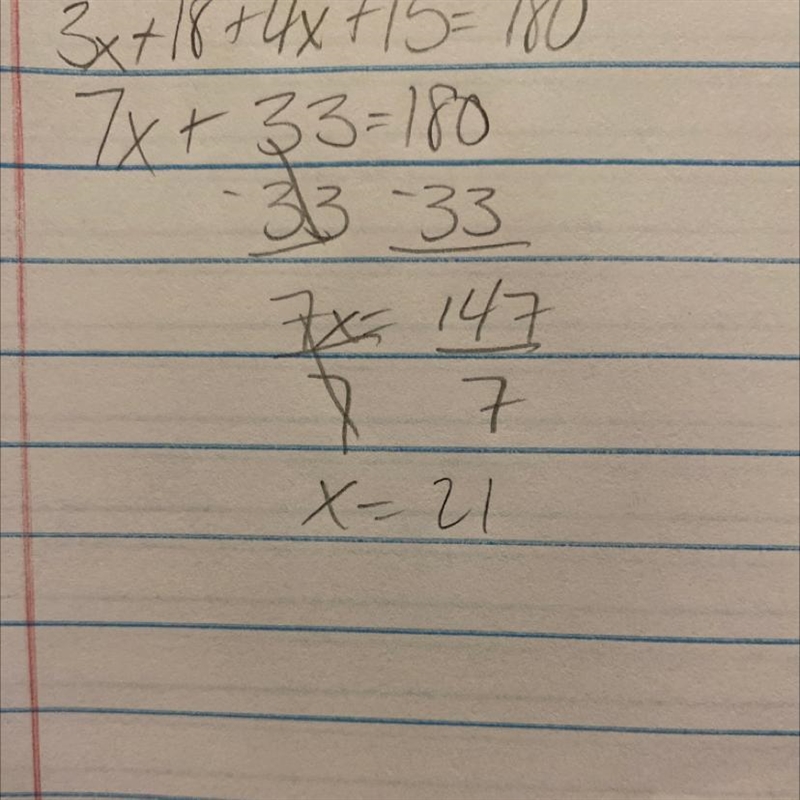 3x+18+4x+15=180
7x+33=180
-33 -33
7x= 147
7 7
x=21